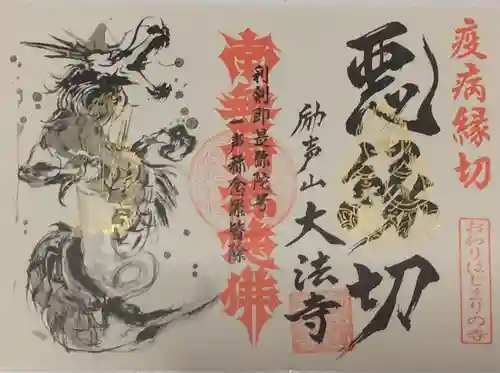 疫病縁切
おわりはじまりの寺
悪縁切
励声山大法寺
利剣即是弥陀号
一声称念罪皆除
南無阿弥陀佛